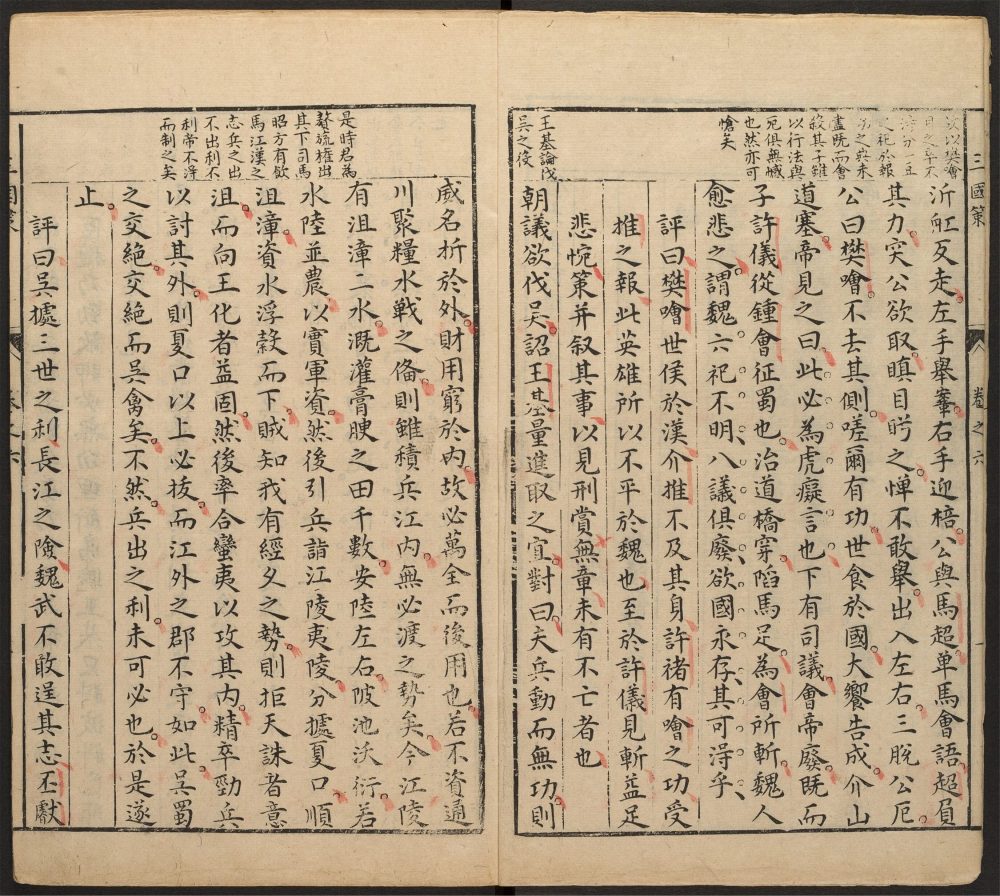 三國策
卷之六
汝以樊噲
盡既而會
殺其子雖
以行法與
死俱無憾
也然亦可
愴矣
王基論伐
吳之役
泝舡反走左手舉鞌右手迎棓公與馬超单馬會語超負
其力突公欲取瞋目盻之憚不敢舉出入左右三脫公厄
公曰樊噲不去其側嗟爾有功世食於國大饗告成介山
道塞帝見之曰此必為虎癡言也下有司議會帝廢既而
子許儀從鍾會征蜀也治道橋穿陷馬足為會所斬魏人
愈悲之謂魏六祀不明八議俱廢欲國永存其可淂乎
評曰樊噲世侯於漢介推不及其身許褚有噲之功受
推之報此英雄所以不平於魏也至於許儀見斬益足
悲惋策并叙其事以見刑賞無章未有不亡者也
朝議欲伐吳詔王基量進取之宜對曰夫兵動而無功則
是時君為
贅旒權出
其下司馬
昭方有歃
馬江漢之
志兵之出
不出利不
利帝不淂
而制之矣
威名折於外財用窮於內故必萬全而後用也若不資通
川聚糧水戰之俻則雖積兵江內無必渡之勢矣今江陵
有沮漳二水溉灌膏腴之田千數安陸左右陂池沃衍若
水陸並農以實軍資然後引兵詣江陵夷陵分據夏口順
沮漳資水浮穀而下賊知我有經夂之勢則拒天誅者意
沮而向王化者益固然後率合蠻夷以攻其內精卒勁兵
以討其外則夏口以上必拔而江外之郡不守如此吳蜀
之交絶交絶而吳禽矣不然兵出之利未可必也於是遂
止
評曰吳據三世之利長江之險魏武不敢逞其志丕獻